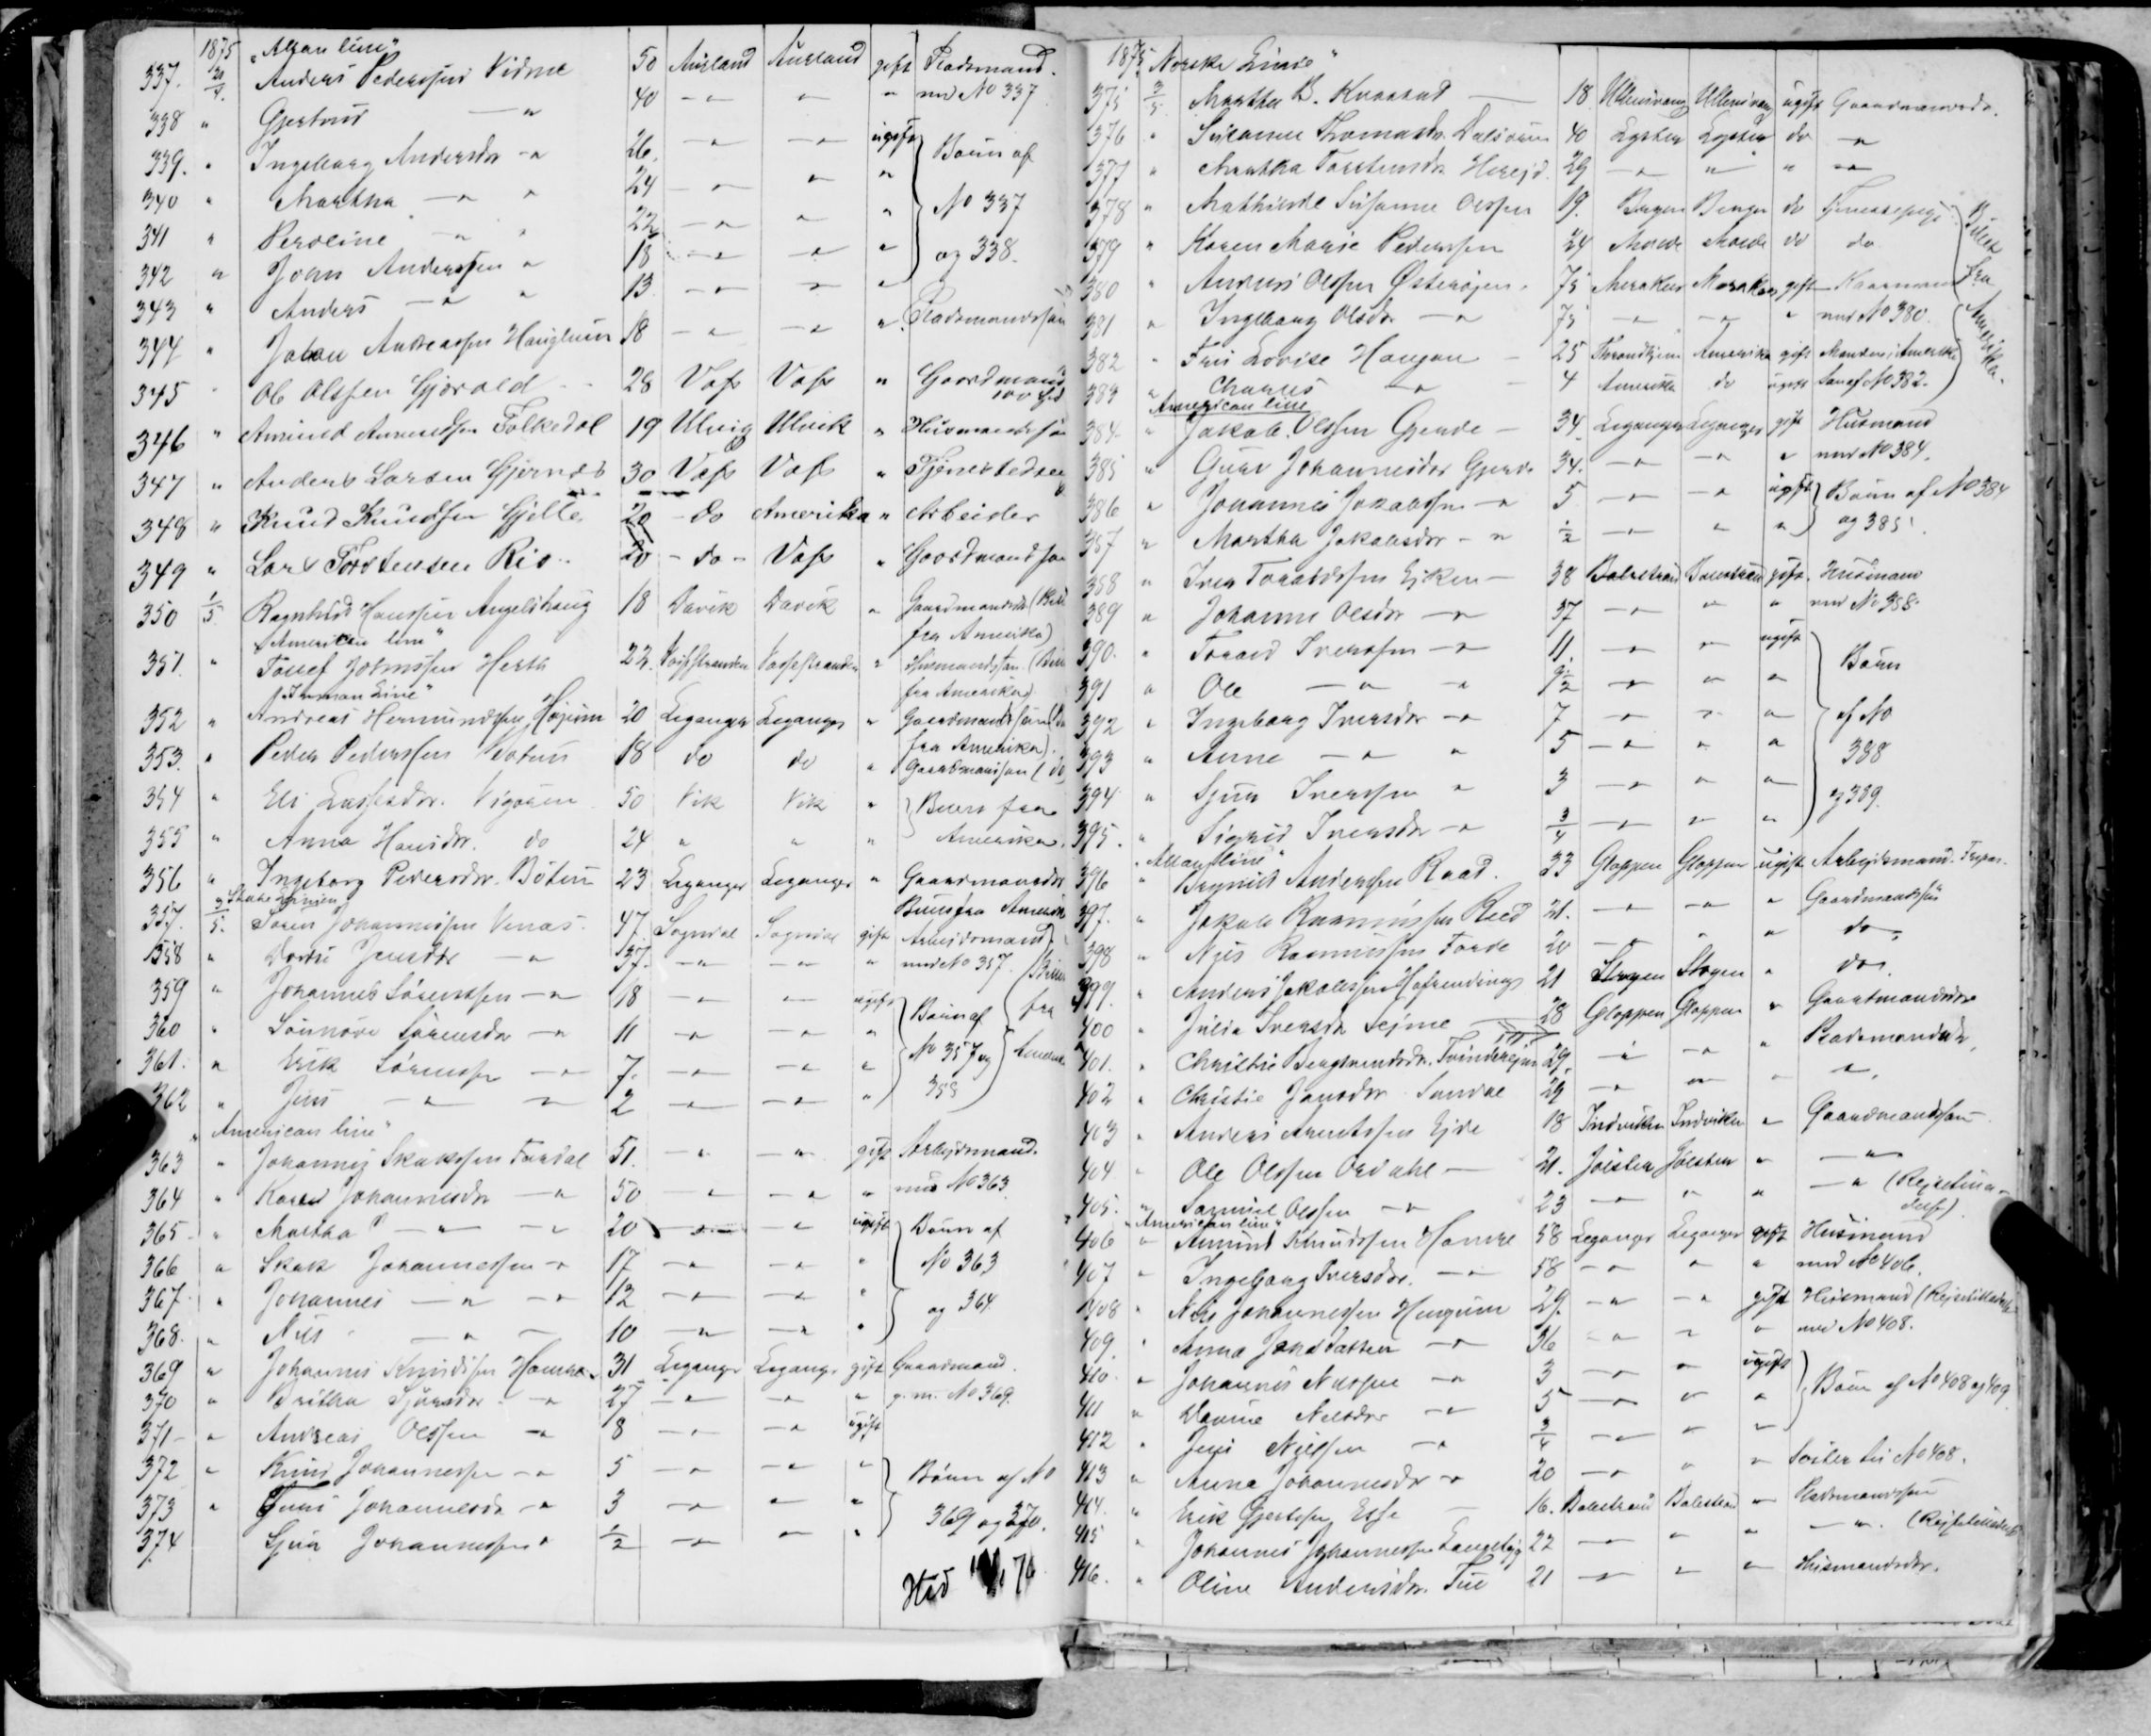 1875 "Allan line"
337. 20/4. Anders Pederssen Vidme 50 Aurland Aurland gift Pladsmand.
338 " Gjertrud — " 40 — " " " med No 337
339. " Ingeborg Andersdr — " 26. — " — " ugift Børn af
340 " Martha — " " 24 — " " "
341 " Peroline — " " 22 — " " " No 337
342 " John Anderssen " 18 — " — " " og 338.
343 " Anders — " " 13 — " — " "
344 " Johan Andreassen Hauglum 18 — " — " " Pladsmandssøn
345 " Ole Olssen Gjørald 28 Voss Voss " Gaardmand
346 " Amund Amundssen Folkedal 19 Ulvig Ulvik " Husmandssøn
347 " Anders Larsen Gjernes 30 Voss Voss " Tjenestedreng
348 " Knud Knudssen Gjelle 20 – do Amerika " Arbeider
349 " Lars Torstensen Rio 20 – do – Voss " Gaardmandssøn
350 1/5. Ragnhild Hanssen Angelshaug 18 Davik Davik " Gaardmandsdr (Bill
fra Amerika)
"American line"
351. " Josef Johnssen Herth 22. Vossestranden Vossestranden " Husmandssøn (Bill
fra Amerika)
"Inman Line"
352 " Andreas Hermundssen Høgum 20 Leganger Leganger " Gaardmandssøn
fra Amerika)
353. " Peder Pederssen Bøtun 18 do do " Gaardmandssøn (do
354 " Eli Lassesdr. Vigøren 50 Vik Vik " Billet fra
355 " Anna Hansdr. do 24 " " " Amerika.
356 " Ingeborg Pedersdr. Bøtun 23 Leganger Leganger " Gaardmandsdr
Billet fra Amerik
State Linien
357. 3/5. Søren Johannessen Venas 47. Sogndal Sogndal gift Arbejdsmand
358 " Dorthe Jensdr — " 37. — " — " " med No 357. (Billet
359 " Johannes Sørenssen — " 18 — " — " ugift Børn af fra
360 " Sønnøve Sørensdr — " 11 — " — " "
361. " Erik Sørenssen — " 7. — " — " " No 357 og Amerik
362 " Jens — " — " 2 — " — " " 358
"American line"
363 " Johannes Skakssen Fardal 51. — " — " gift Arbejdsmand.
364 " Karen Johannesdr — " 50 — " — " " med No 363
365 " Martha — " — " 20 — " — " ugift Børn af
366 " Skak Johannessen — " 17 — " — " " No 363
367 " Johannes — " — " 12 — " — " " og 364
368. " Nils — " — 10 — " — " "
369 " Johannes Knudssen Hamre 31 Leganger Leganger gift Gaardmand.
370 " Brithe Sjursdr — " 27 — " — " " g. m. No 369.
371 — " Andreas Olssen — " 8 — " — " ugift
372 " Knud Johannessen — " 5 — " — " " Børn af No
373 " Johannesdr — " 3 — " — " " 369 og 370.
374 Sjur Johannessen " 1/2 — " — " "
1875 "Norske Linie"
375 3/5 Martha B. Kvæstad — 18 Ullensvang Ullensvang ugift Gaardmandsdr.
376 " Susanne Thomasdr. Dalsøren 40 Lyster Lyster do — "
377 " Martha Torstensdr 29 — " " " — "
378 " Mathilde Susanne Olssen 19. Bergen Bergen do
379 " Karen Marie Pederssen 24 Molde Molde do do Billet
380 " Anders Olssen Østerøyen 75 Meraker Meraker gift Kaarmand fra
381 " Ingeborg Olsdr — " 75 — " — " " med No 380.
382 " Fru Lovise Haugan — 25 Throndhjem Amerika gift Manden i Amerika Amerika.
383 " Charles — " 4 Amerika do ugift Søn af No 382.
American line
384 " Jakob Olssen Gjerde — 34. Leganger Leganger gift Husmand
385 " Guri Johannesdr Gjerde 34. — " — " " med No 384.
386 " Johannes Jakobssen — " 5 — " — " ugift Børn af No 384
387 " Martha Jakobsdr — " 1/2 — " " " og 385.
388 " Iver Toraldssen Ejken — 38 Balestrand Balestrand gift. Husmand
389 " Johanne Olsdr — " 37 — " " " med No 388.
390. " Torald Iverssen — " 11. — " — " ugift Børn
391 " Ole — " — " 9 1/2 — " " "
392 " Ingeborg Iversdr — " 7 — " — " " af No
393 " Anne — " " 5 — " " " 388
394 " Sjur Iverssen " 3 — " " " og 389.
395. " Sigrid Iversdr — " 3/4 — " " "
"Allanline"
396 " Anderssen Raad. 33 Gloppen Gloppen ugift Arbejdsmand.
397. " Jakob Rasmussen Reed 21. — " — " " Gaardmandssøn
398 " Nils Rasmussen Førde 20 — " " " do.
399. " Anders Jakobssen 21 Stryen Stryen " do.
400 " Julia Iversdr Sejme 28 Gloppen Gloppen " Gaardmandsdr
401. " Christie 29. — " — " " Pladsmandsdr,
402 " Christie Jansdr Sandal 29 — " " " — ",
403 " Anders Arentssen Ejde 18 Indviken Indviken " Gaardmandssøn
404 " Ole Olssen Ordahl — 21. Jølster Jølster " — "
405. " Samuel Olssen — " 23 — " " " — " (Rejsetilla-
delse)
"American line"
406 " Amund Knudssen Hamre 58 Leganger Leganger gift Husmand
407 " Ingeborg Iversdr. — " 58 — " " " med No 406.
408 " Nils Johannessen Henjum 29. — " — " gift Husmand (Rejsetilladelse
409. " Anna — " 36 — " " " med No 408.
410. " Johannes Nilssen — " 3 — " " ugift
411 " Nilsdr — " 5 — " " " Børn af No 408 og 409
412 " Jens Nilssen — " 3/4 — " " "
413 " Anna Johannesdr — " 20 — " " " Søster til No 408.
414. " Erik Gjertssen Esse — 16. Balestrand Balestrand " Pladsmandssøn
415 " Johannes Johannessen 22 — " " " — ". (Rejsetilladelse
416. " Oline Andersdr. Tue 21 — " " " Husmandsdr.